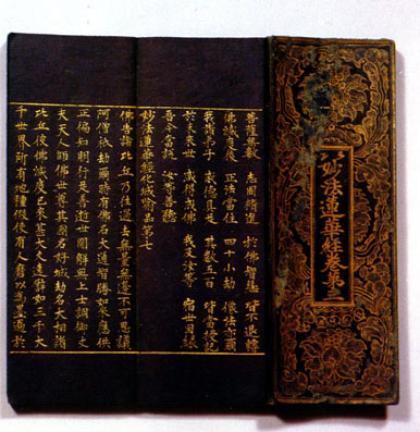 妙法蓮華經卷第三
菩薩無數 志固精進 於佛智慧 皆不退轉
佛滅度後 正法當住 四十小劫 像法亦爾
我諸弟子 威德具足 其數五百 皆當授記
於未來世 咸得成佛 我及汝等 宿世因緣
吾今當說 汝等善聽
妙法蓮華經化城喻品第七
佛告諸比丘乃往過去無量無邊不可思議
阿僧祇劫爾時有佛名大通智勝如來應供
正徧知明行足善逝世間解無上士調御丈
夫天人師佛世尊其國名好城劫名大相諸
比丘彼佛滅度已來甚大久遠譬如三千大
千世界所有地種假使有人磨以為墨過於